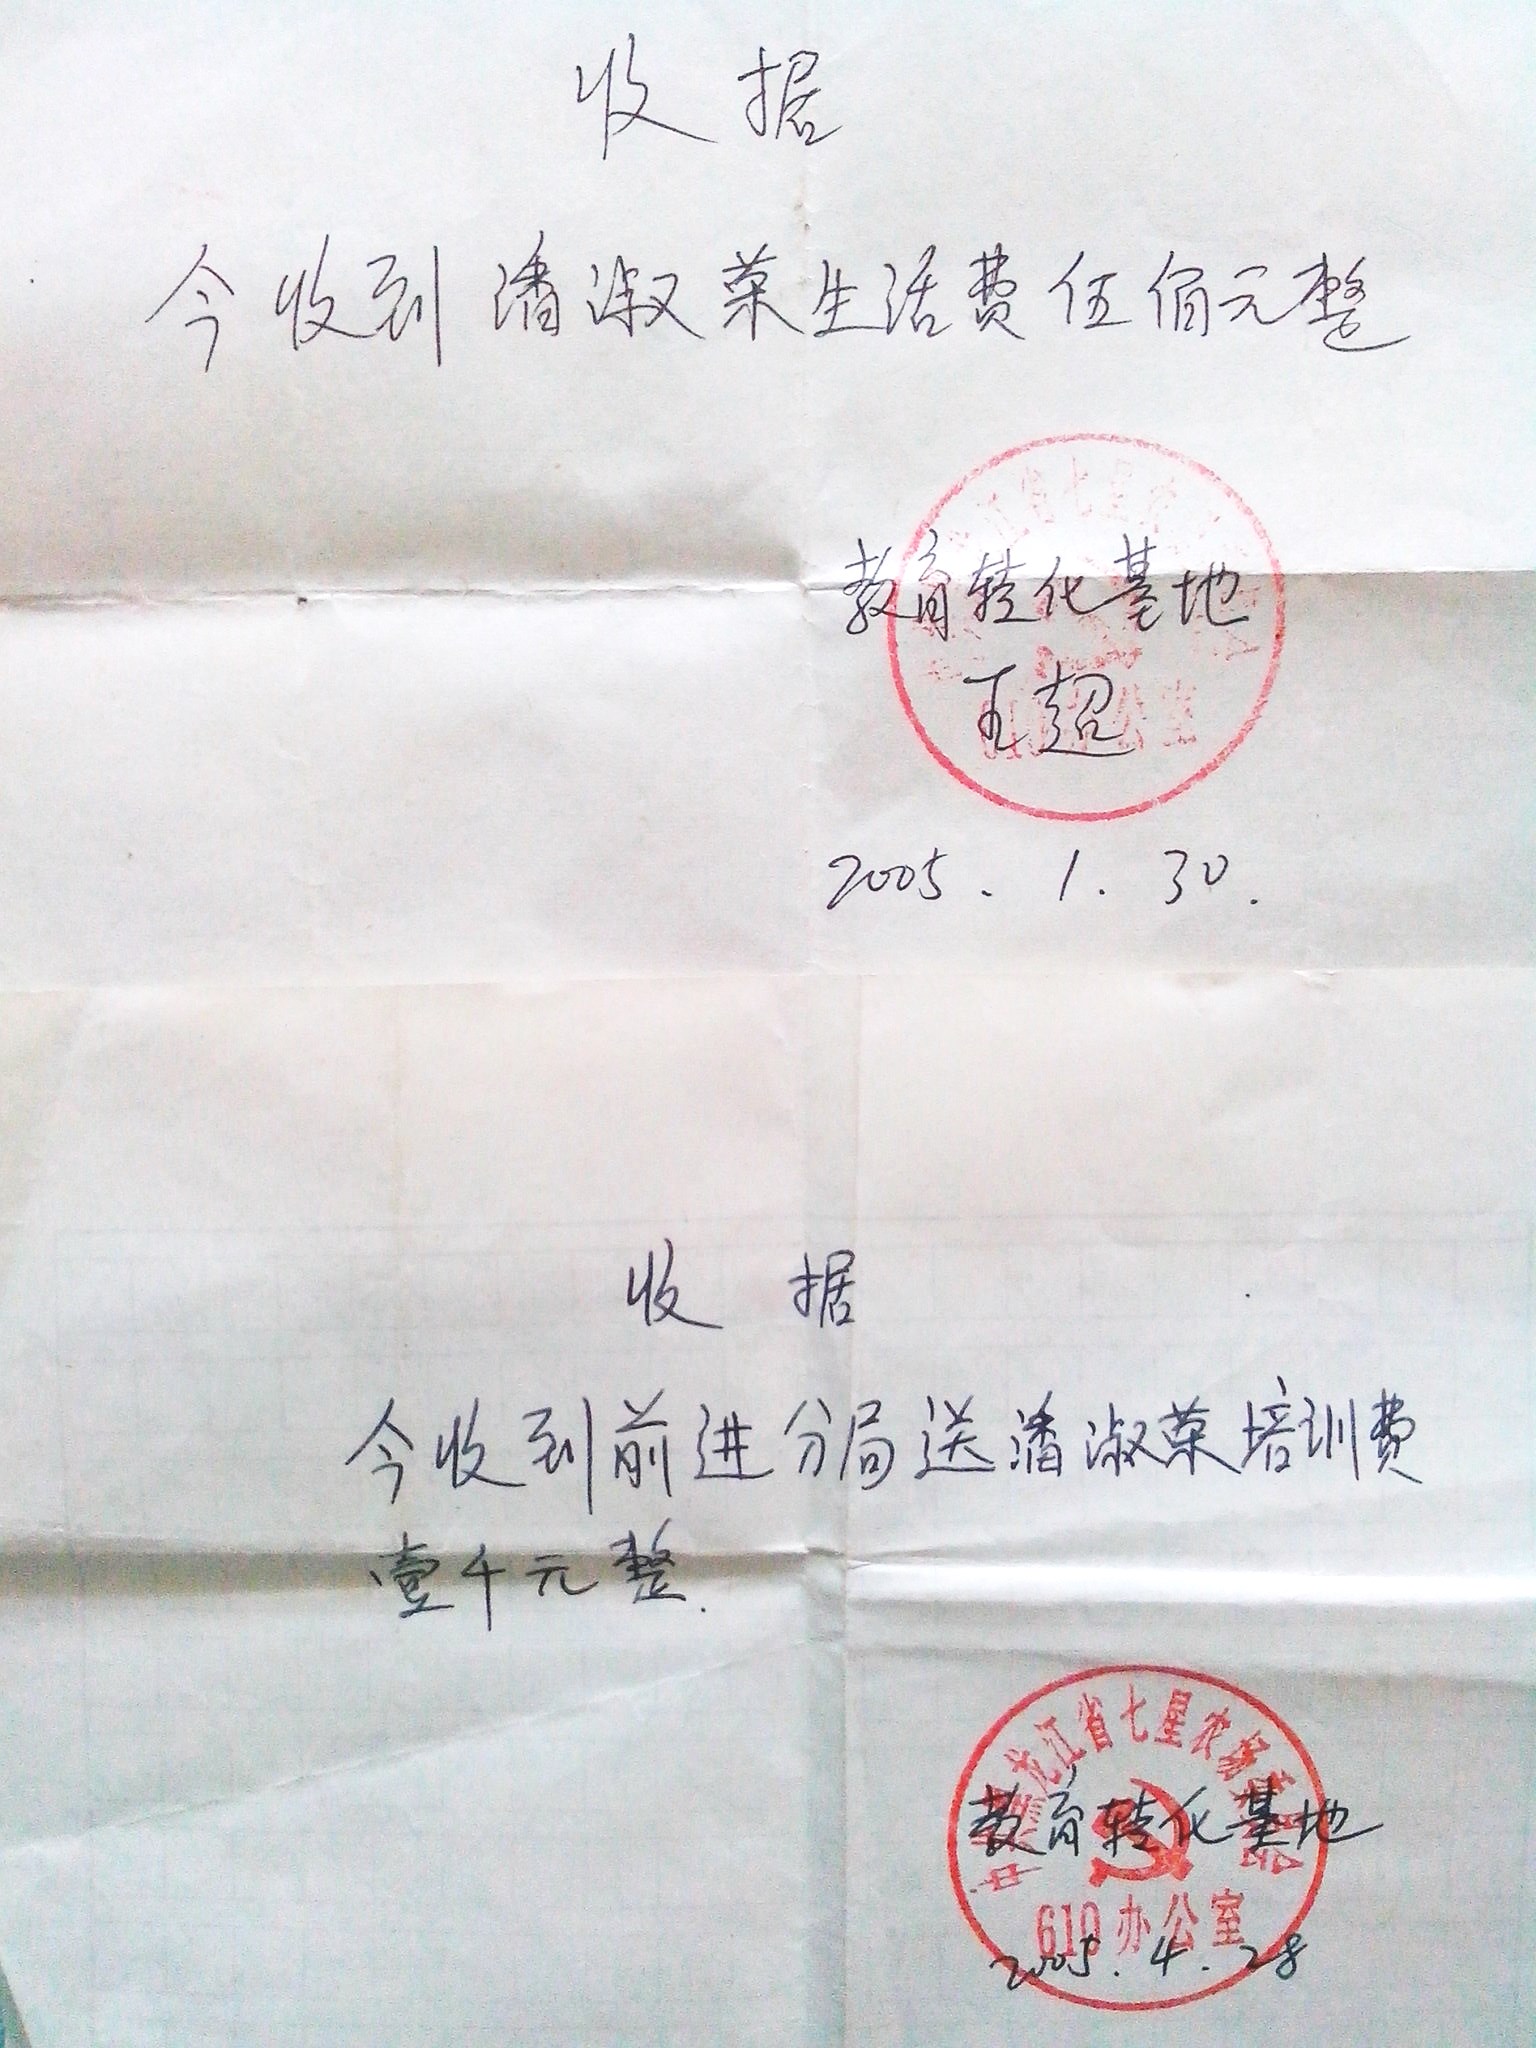 收据
今收到潘淑荣生活费伍佰元整
江省七星农
教育转化基地
王超
610办公室
2005.1.30.
收据
今收到前进分局送潘淑荣培训费
壹千元整.
中共黑龙江省七星农场委员会
教育转化基地
610办公室
2005.4.28